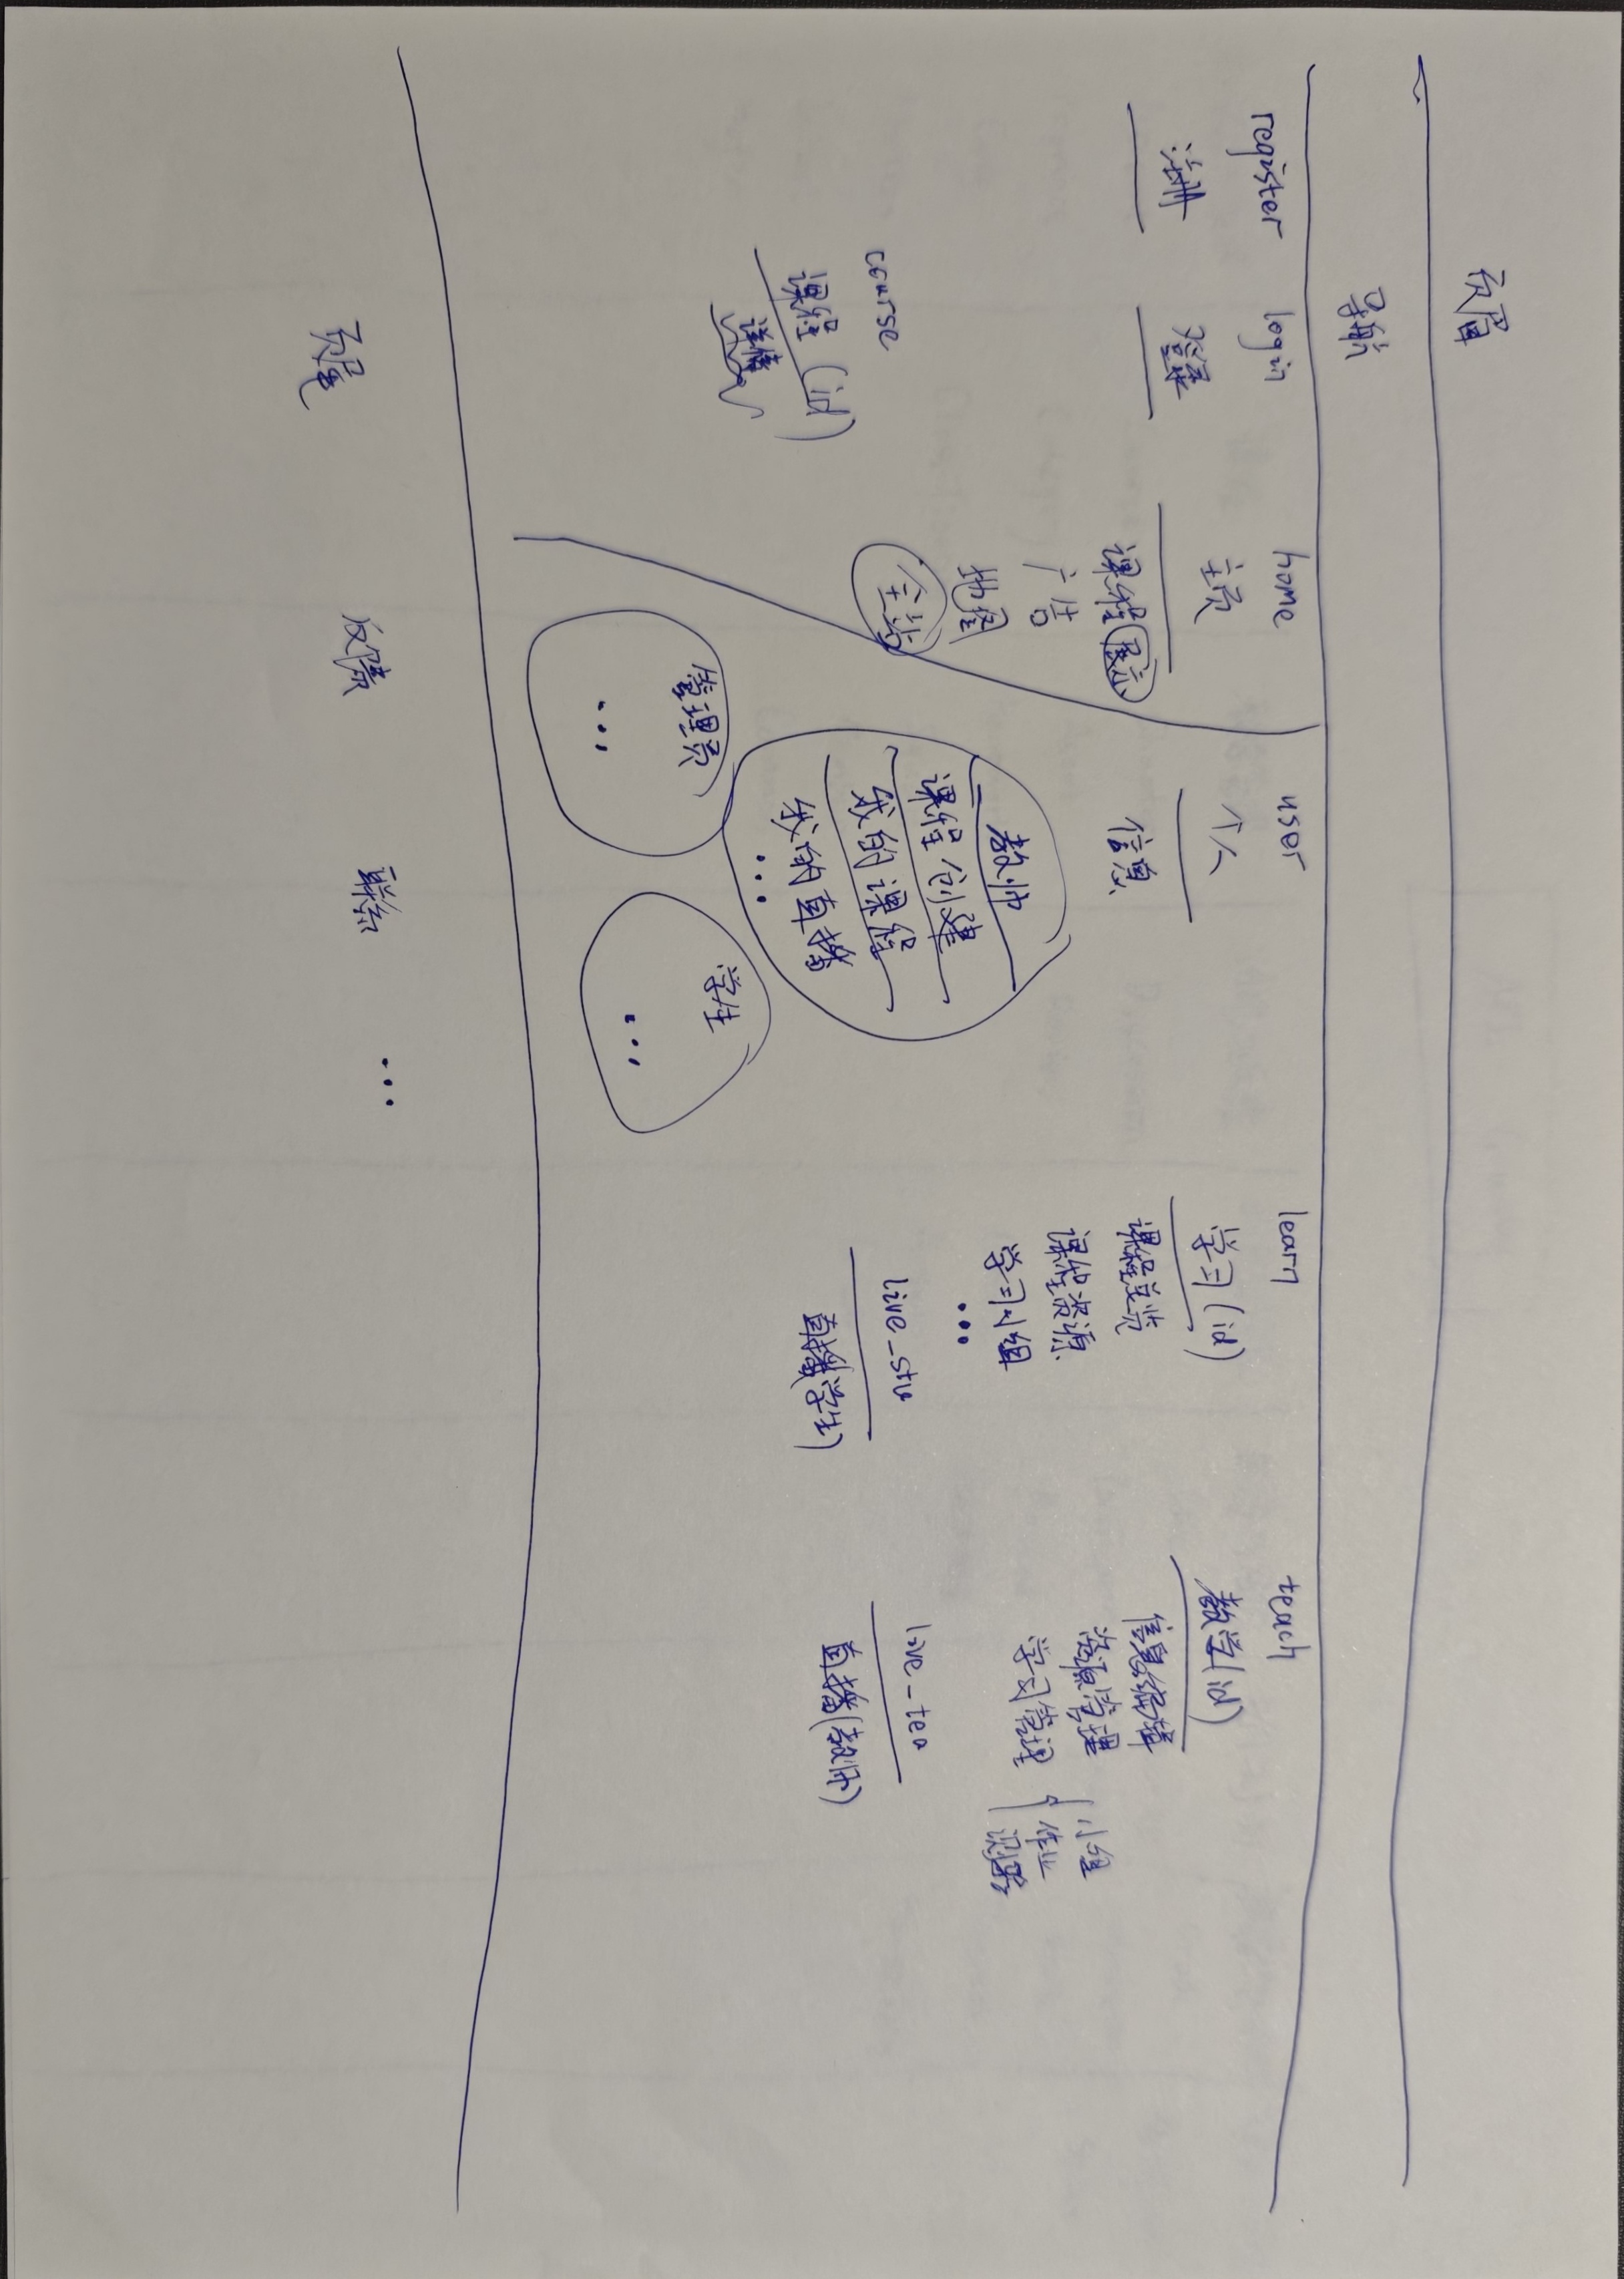 页眉
导航
register
注册
login
登录
home
主页
课程展示
广告
地图
全站
course
课程(id)
详情
user
个人
信息
教师
课程创建
我的课程
我的直播
...
管理员
...
学生
...
learn
学习(id)
课程总览
课程资源
学习小组
...
live_stu
直播(学生)
teach
教学(id)
信息编辑
资源管理
学习管理
小组
作业
测验
live_tea
直播(教师)
页尾
反馈
联系
...